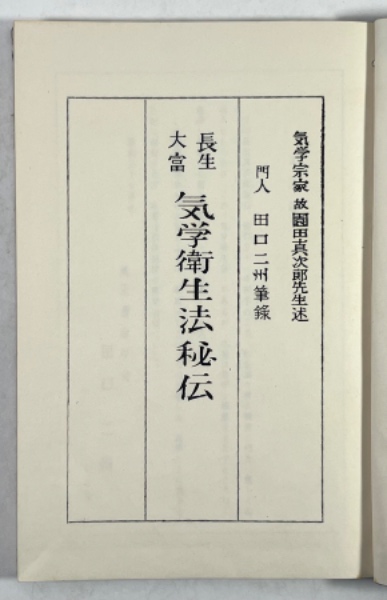 気学宗家 故 園田真次郎先生述
門人 田口二州筆録
長生
大富
気学衛生法秘伝